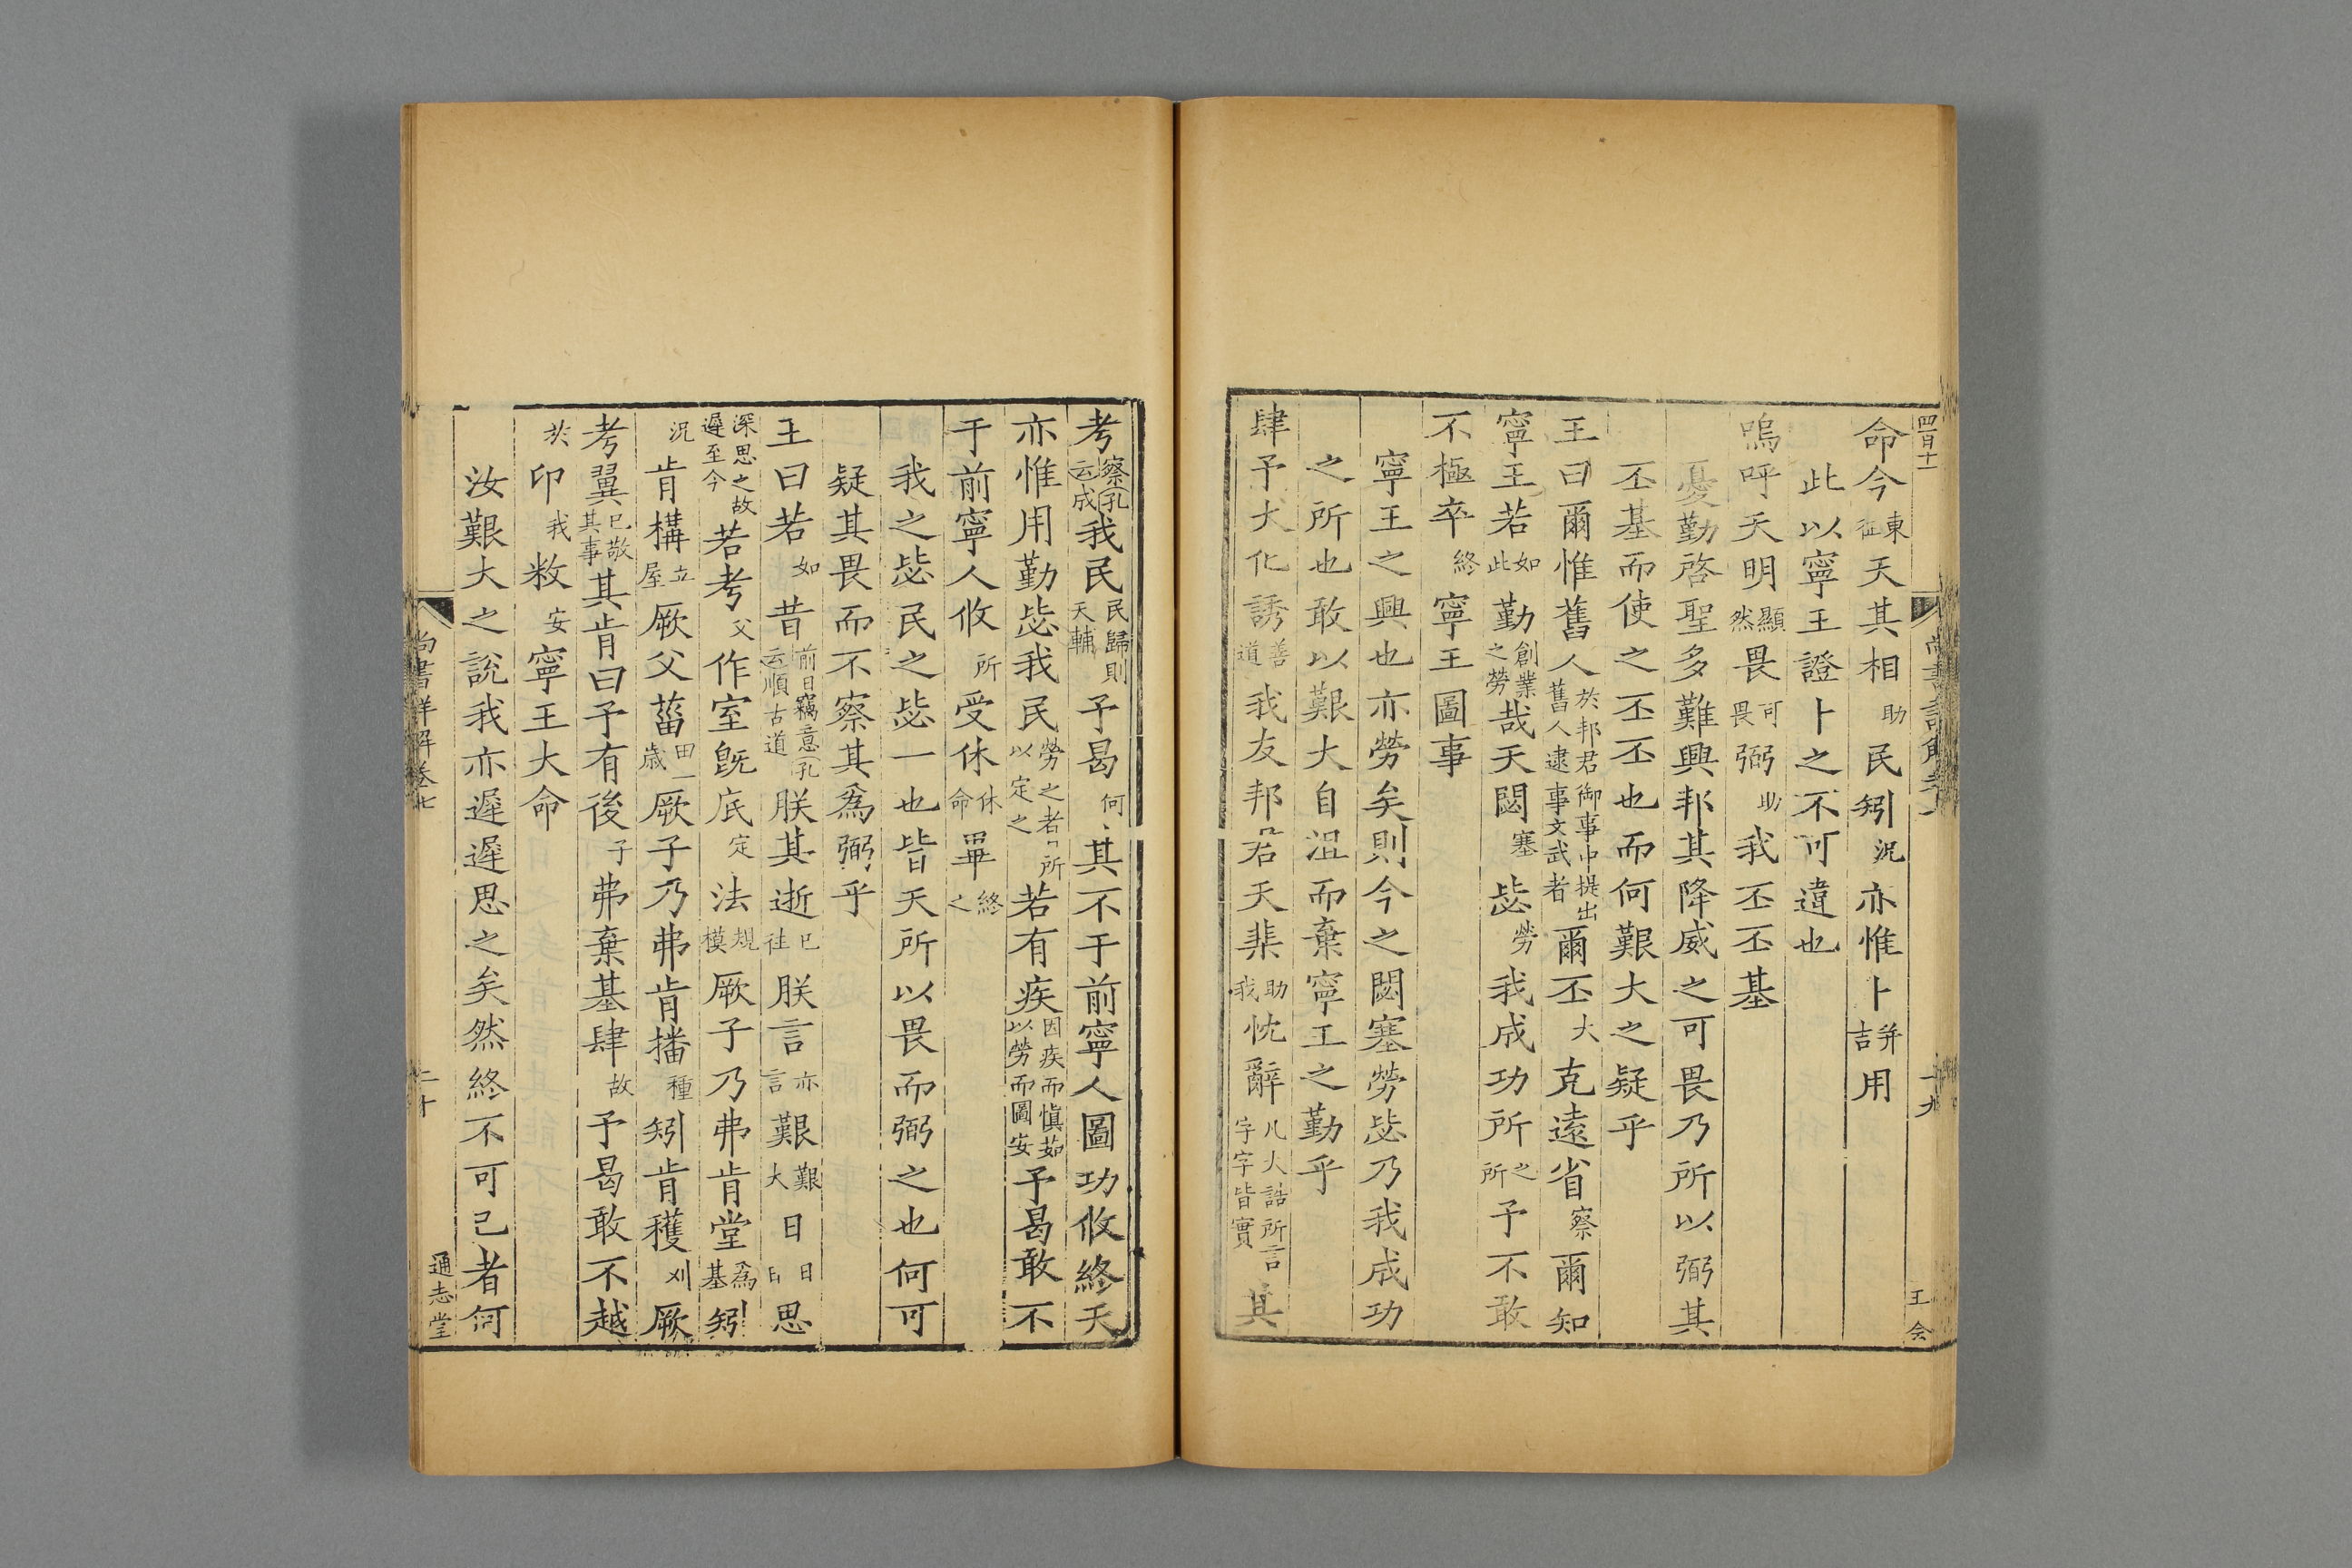 四百十
尚書詳解卷七
十九
王会
命今東征天其相助民矧況亦惟卜并吉用
此以寧王證卜之不可違也
嗚呼天明顯然畏可畏弼助我丕丕基
憂勤啓聖多難興邦其降威之可畏乃所以弼其
丕基而使之丕丕也而何艱大之疑乎
王曰爾惟舊人於邦君御事中提出舊人逮事文武者爾丕大克遠省察爾知
寧王若如此勤創業之勞哉天閟塞毖勞我成功所之所予不敢
不極卒終寧王圖事
寧王之興也亦勞矣則今之閟塞勞毖乃我成功
之所也敢以艱大自沮而棄寧王之勤乎
肆予大化誘善道我友邦君天棐助我忱辭凡大誥所言字字皆實其
考察孔云成我民民歸則天輔予曷何其不于前寧人圖功攸終天
亦惟用勤毖我民勞之者所以定之若有疾因疾而愼茹以勞而圖安予曷敢不
于前寧人攸所受休休命畢終之
我之毖民之毖一也皆天所以畏而弼之也何可
疑其畏而不察其爲弼乎
王曰若如昔前日竊意孔云順古道朕其逝已往朕言亦言艱艱大日日日思
深思之故遲至今若考父作室旣底定法規模厥子乃弗肯堂爲基矧
況肯構立屋厥父菑田一歲厥子乃弗肯播種矧肯穫刈厥
考翼已敬其事其肯曰予有後子弗棄基肆故予曷敢不越
於卬我敉安寧王大命
汝艱大之說我亦遲遲思之矣然終不可已者何
尚書詳解卷七
二十
通志堂